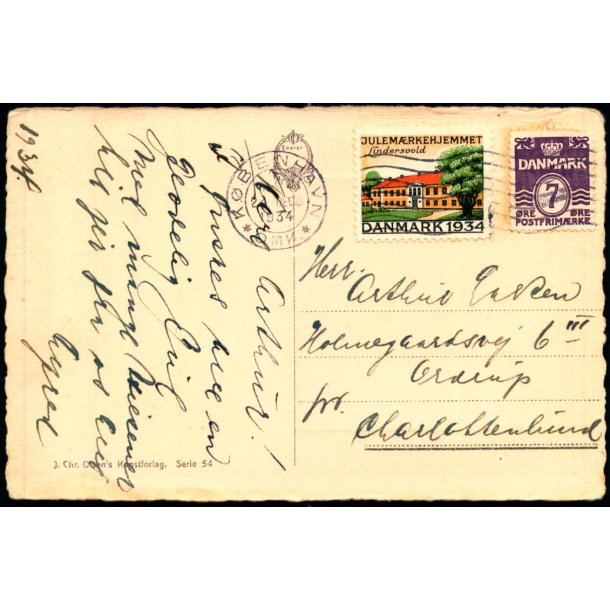 1934.
Kære Arthur!
ønskes hee en
Glædelig Jul
Med mange hilsener
til jer fra os
Eneret
KØBENHAVN
1934
OMK.
JULEMÆRKEHJEMMET
Lindersvold
DANMARK 1934
DANMARK
7
ØRE ØRE
POSTFRIMÆRKE
Herr.
Arthur
Holmegaardsvej 6 III
Ordrup
pr.
Charlottenlund
J. Chr. Olsen's Kunstforlag. Serie 54